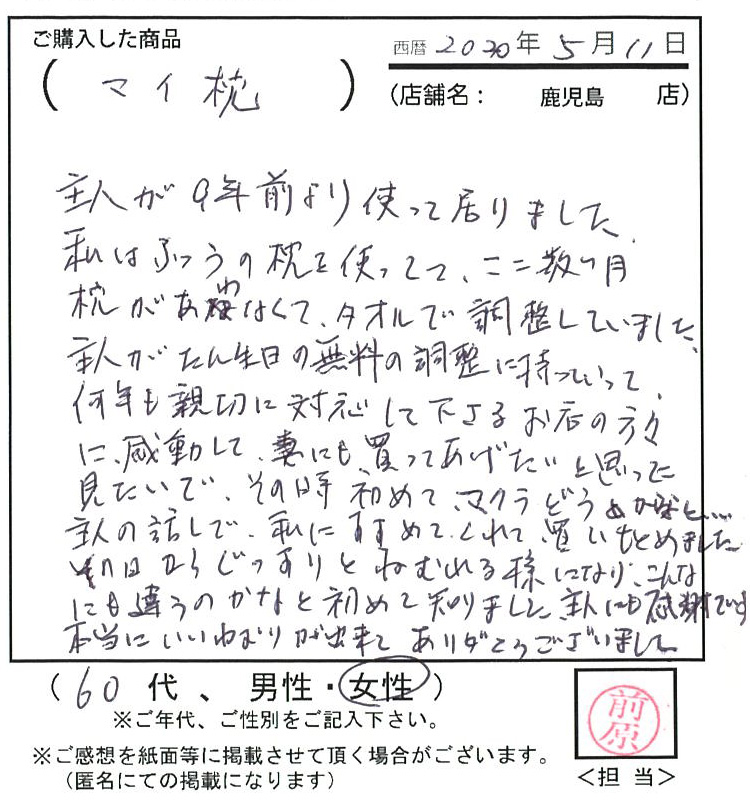 ご購入した商品
西暦 2020年 5月 11日
(マイ枕)
(店舗名: 鹿児島 店)
主人が9年前より使って居りました。
私はふつうの枕を使ってて、ここ数ヶ月
枕があわなくて、タオルで調整していました。
主人がたん生日の無料の調整に持っていって、
何年も親切に対応して下さるお店の方々
に、感動して、妻にも買ってあげたいと思った
見たいで、その時初めて、マクラどうかなと…
主人の話しで、私にすすめてくれて、買いもとめました。
日からぐっすりとねむれる様になり、こんな
にも違うのかなと初めて知りました。主人にも感謝です
本当にいいねむりが出来てありがとうございました
(60代、男性・女性)
※ご年代、ご性別をご記入下さい。
※ご感想を紙面等に掲載させて頂く場合がございます。
(匿名にての掲載になります)
前原
<担 当>